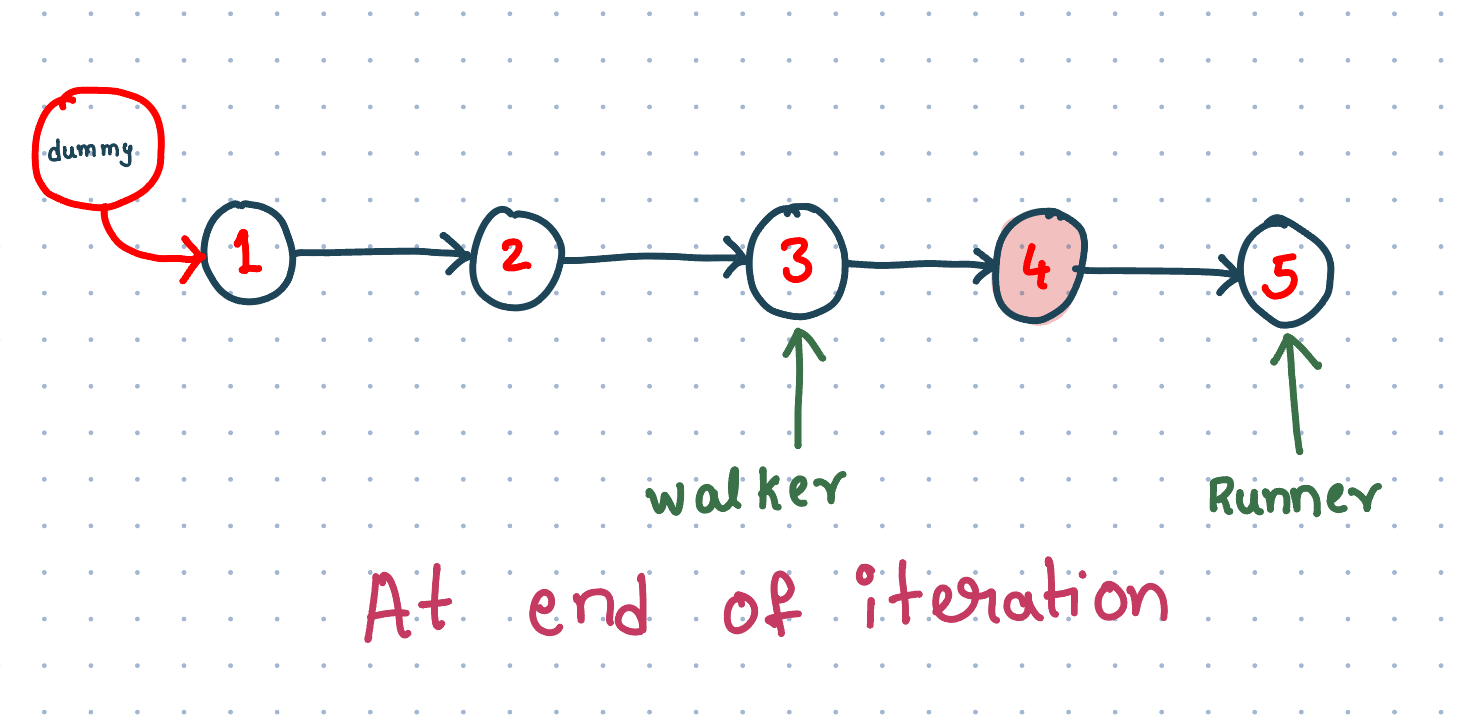 dummy
1 2 3 4 5
walker Runner
At end of iteration